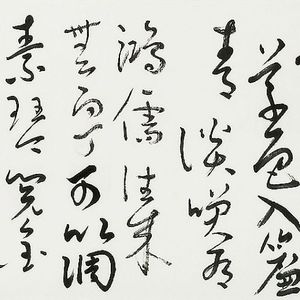 草色入簾
青談笑有
鴻儒往來
無白丁可以調
素琴閱金